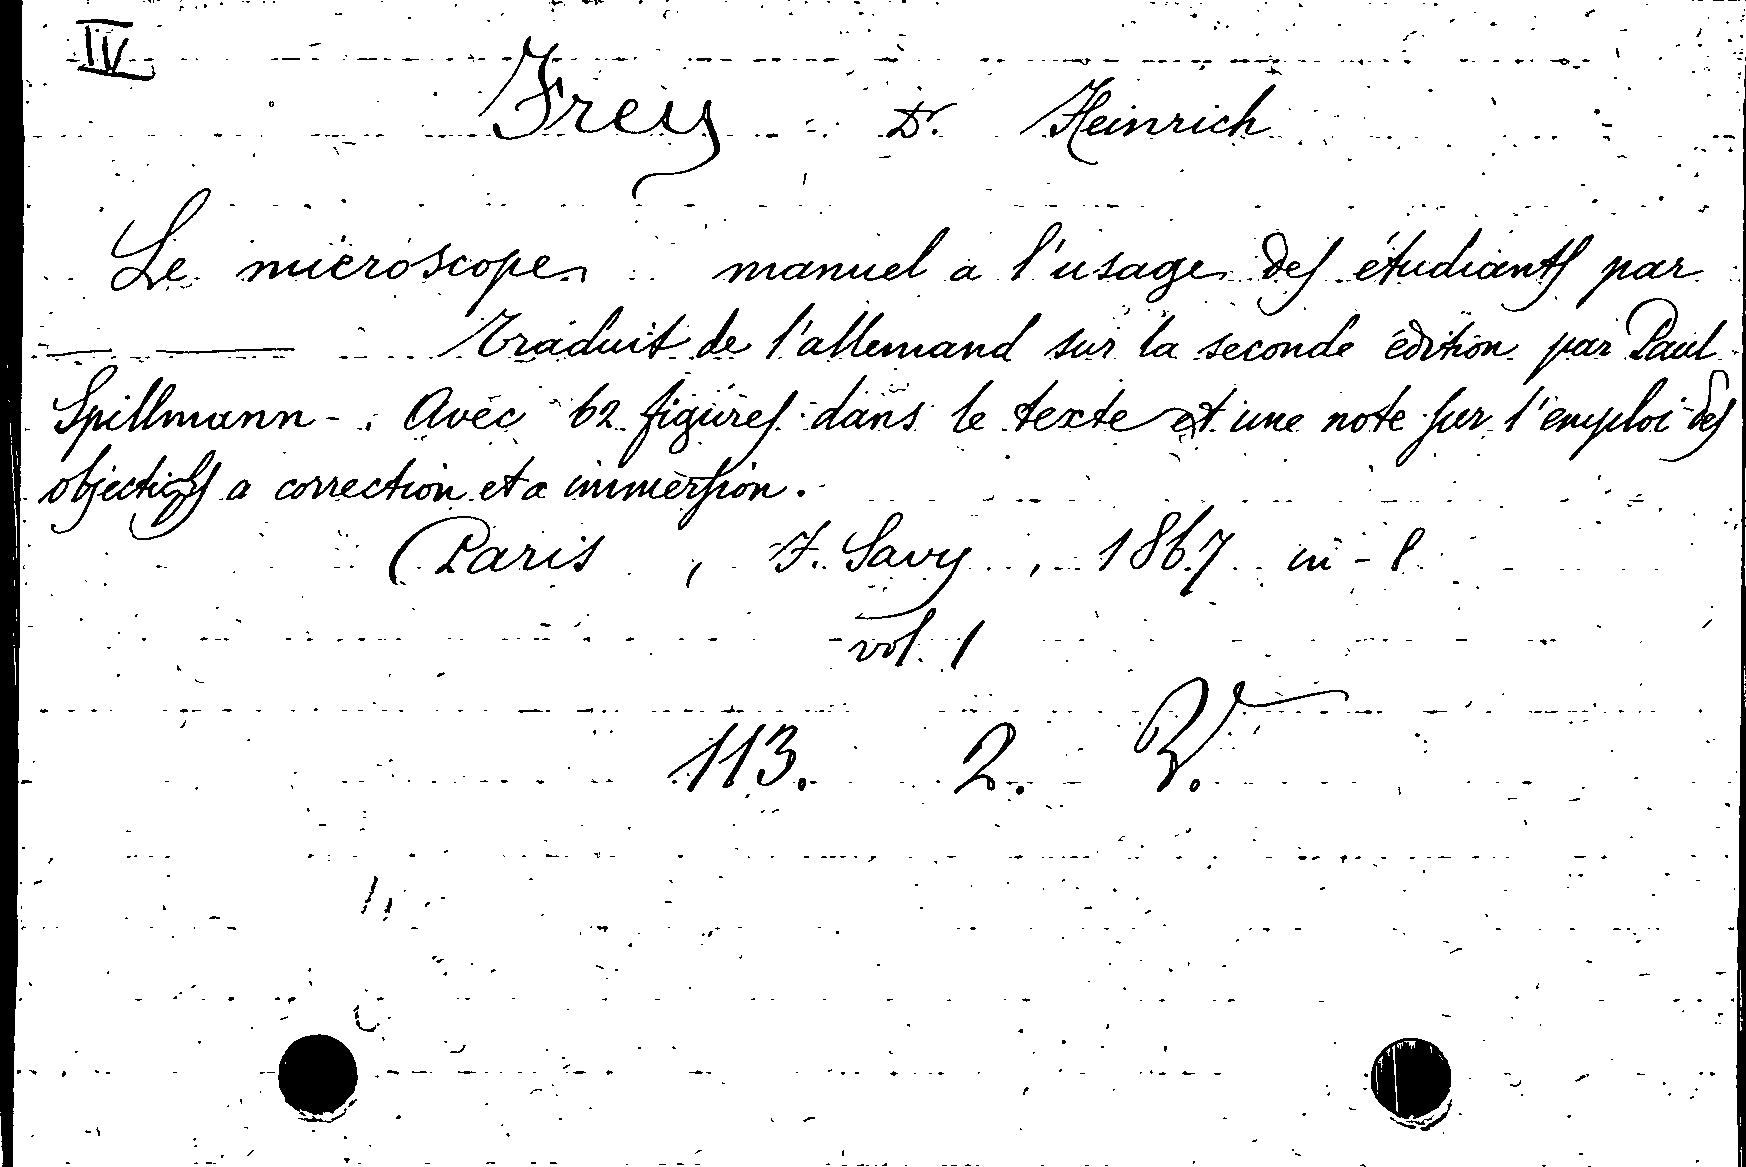 IV
Frey Dr. Heinrich
Le microscope manuel a l'usage des étudiants par
——— Traduit de l'allemand sur la seconde édition par Paul
Spillmann - . Avec 62 figures dans le texte et une note sur l'emploi des
objectifs a correction et a immersion.
(Paris, F. Savy, 1867 in-8
vol. 1
113. 2. V.